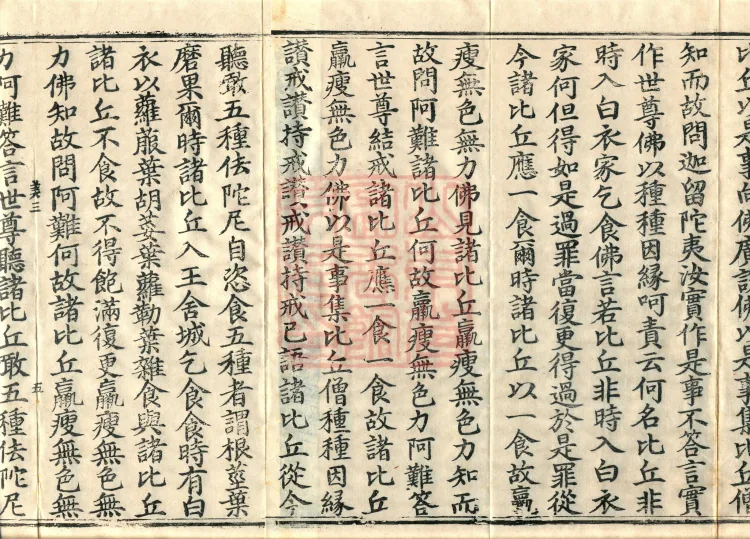 知而故問迦留陀夷汝實作是事不答言實
作世尊佛以種種因緣呵責云何名比丘非
時入白衣家乞食佛言若比丘非時入白衣
家何但得如是過罪當復更得過於是罪從
今諸比丘應一食爾時諸比丘以一食故羸
瘦無色無力佛見諸比丘羸瘦無色力知而
故問阿難諸比丘何故羸瘦無色力阿難答
言世尊結戒諸比丘應一食一食故諸比丘
羸瘦無色力佛以是事集比丘僧種種因緣
讃戒讃持戒讃戒讃持戒已語諸比丘從今
聽噉五種佉陀尼自恣食五種者謂根莖葉
磨果爾時諸比丘入王舍城乞食食時有白
衣以蘿蔔葉胡荽葉蘿勒葉雜食與諸比丘
諸比丘不食故不得飽滿復更羸瘦無色無
力佛知故問阿難何故諸比丘羸瘦無色無
五
力阿難答言世尊聽諸比丘噉五種佉陀尼